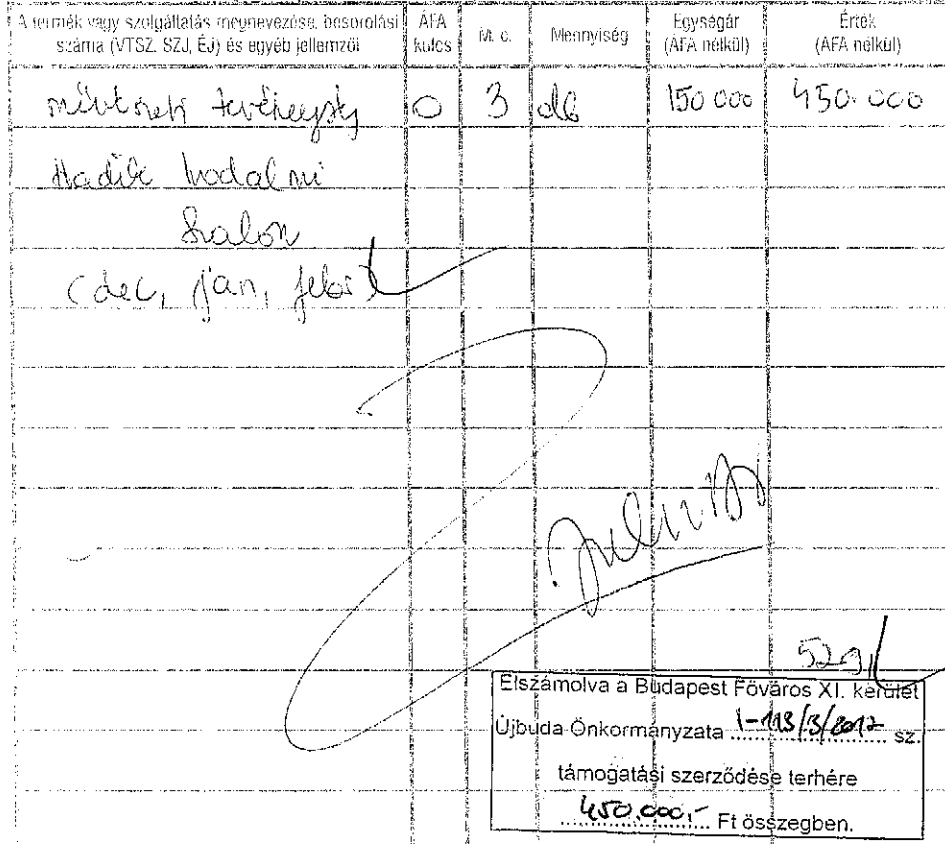 A termék vagy szolgáltatás megnevezése, besorolási száma (VTSZ, SZJ, ÉJ) és egyéb jellemzői
ÁFA kulcs
M. e.
Mennyiség
Egységár (ÁFA nélkül)
Érték (ÁFA nélkül)
művészeti tevékenység 0 3 db 150 000 450.000
Hadik Irodalmi
Szalon
(dec, jan, febr)
Elszámolva a Budapest Főváros XI. kerület
Újbuda Önkormányzata I-113/3/2012 sz.
támogatási szerződése terhére
450.000.- Ft összegben.